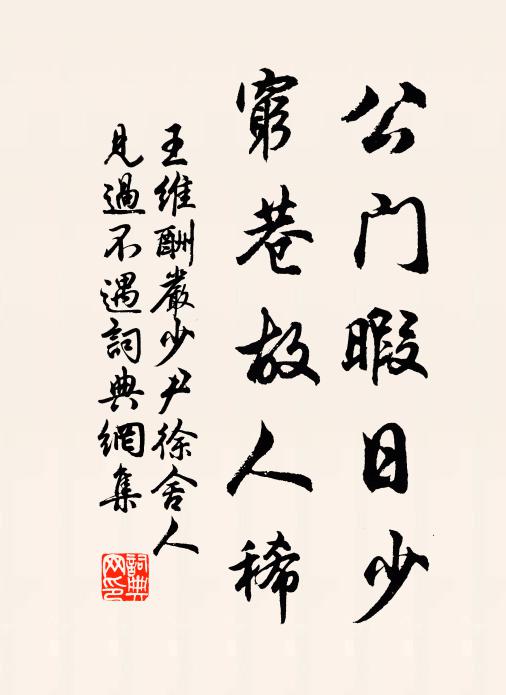 公门暇日少
穷巷故人稀
王维酬嚴少尹徐舍人
見過不遇詞典網集
詞典
网印